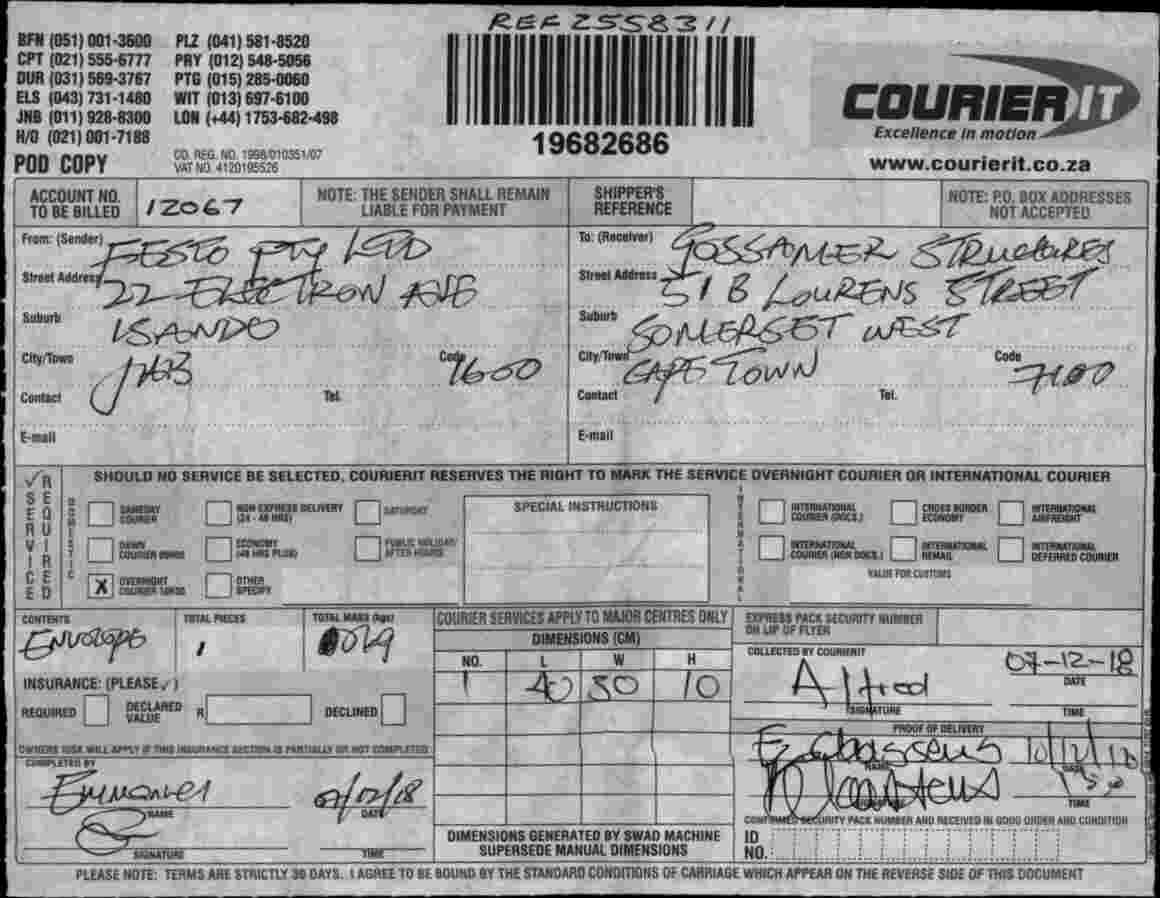 REF 2558311
BFN (051) 001-3600 PLZ (041) 581-8520
CPT (021) 555-6777 PRY (012) 548-5056
DUR (031) 569-3767 PTG (015) 285-0060
ELS (043) 731-1480 WIT (013) 697-6100
JNB (011) 928-8300 LON (+44) 1753-682-498
H/O (021) 001-7188
19682686
COURIER IT
Excellence in motion
www.courierit.co.za
POD COPY
CO. REG. NO. 1998/010351/07
VAT NO. 4120195526
ACCOUNT NO. TO BE BILLED 12067
NOTE: THE SENDER SHALL REMAIN LIABLE FOR PAYMENT
SHIPPER'S REFERENCE
NOTE: P.O. BOX ADDRESSES NOT ACCEPTED
From: (Sender) FESTO PTY LTD
Street Address 22 ELECTRON AVE
Suburb ISANDO
City/Town JHB Code 1600
Contact Tel.
E-mail
To: (Receiver) GOSSAMER STRUCTURES
Street Address 51 B LOURENS STREET
Suburb SOMERSET WEST
City/Town CAPE TOWN Code 7100
Contact Tel.
E-mail
SERVICE REQUIRED
SHOULD NO SERVICE BE SELECTED, COURIERIT RESERVES THE RIGHT TO MARK THE SERVICE OVERNIGHT COURIER OR INTERNATIONAL COURIER
DOMESTIC
SAMEDAY COURIER
NON EXPRESS DELIVERY (24 - 48 HRS)
SATURDAY
DAWN COURIER
ECONOMY (48 HRS PLUS)
PUBLIC HOLIDAY/ AFTER HOURS
X OVERNIGHT COURIER 10H30
OTHER SPECIFY
SPECIAL INSTRUCTIONS
INTERNATIONAL
INTERNATIONAL COURIER (DOCS.)
CROSS BORDER ECONOMY
INTERNATIONAL AIRFREIGHT
INTERNATIONAL COURIER (NON DOCS.)
INTERNATIONAL REMAIL
INTERNATIONAL DEFERRED COURIER
VALUE FOR CUSTOMS
CONTENTS Envelope
TOTAL PIECES 1
TOTAL MASS (kgs)
INSURANCE: (PLEASE ✓)
REQUIRED DECLARED VALUE R DECLINED
OWNERS RISK WILL APPLY IF THIS INSURANCE SECTION IS PARTIALLY OR NOT COMPLETED
COMPLETED BY
Emmanuel
NAME DATE
SIGNATURE TIME
COURIER SERVICES APPLY TO MAJOR CENTRES ONLY
DIMENSIONS (CM)
NO. L W H
1 40 30 10
DIMENSIONS GENERATED BY SWAD MACHINE SUPERSEDE MANUAL DIMENSIONS
EXPRESS PACK SECURITY NUMBER ON LIP OF FLYER
COLLECTED BY COURIERIT
Alfred 07-12-18
SIGNATURE DATE
TIME
PROOF OF DELIVERY
10/12/18
NAME DATE
TIME
CONFIRMED SECURITY PACK NUMBER AND RECEIVED IN GOOD ORDER AND CONDITION
ID NO.
PLEASE NOTE: TERMS ARE STRICTLY 30 DAYS. I AGREE TO BE BOUND BY THE STANDARD CONDITIONS OF CARRIAGE WHICH APPEAR ON THE REVERSE SIDE OF THIS DOCUMENT